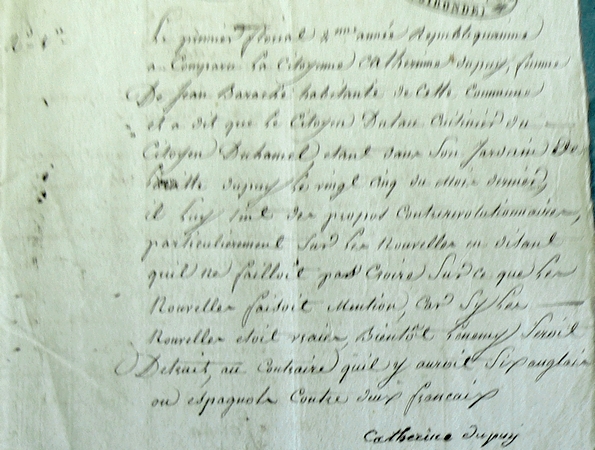 GIRONDE
Le premier floreal 2me année Republiquainne
a Comparu la Citoyenne Catherinne dupuy, femme
De Jean Barache habitante de Cette Commune
et a dit que le Citoyen Dutau Cuisinier du
Citoyen Duhamel, etant dans Son Jardain De
dupuy le vingt cinq du Mois dernier,
il luy tint des propos Contrerevolutionnaires,
particulierement Sur les Nouvelles en disant
quil ne failloit pas Croire Sur ce que les
Nouvelles faisoit Mention, Car Sy les
Nouvelles etoit vraies, Bientôt Lenemy Seroit
Detruit, au Contraire quil y auroit Six anglais
ou espagnols Contre deux francaix
Catherine dupuy